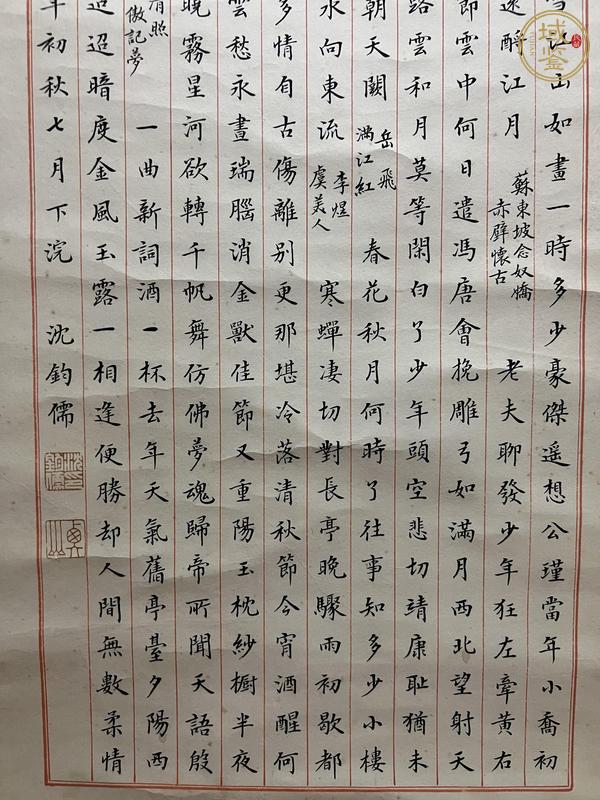 江山如畫一時多少豪傑遙想公瑾當年小喬初
還酹江月
蘇東坡念奴嬌
赤壁懷古
老夫聊發少年狂左牽黃右
節雲中何日遣馮唐會挽雕弓如滿月西北望射天
路雲和月莫等閑白了少年頭空悲切靖康恥猶未
朝天闕
岳飛
滿江紅
春花秋月何時了往事知多少小樓
水向東流
李煜
虞美人
寒蟬凄切對長亭晚驟雨初歇都
多情自古傷離別更那堪冷落清秋節今宵酒醒何
雲愁永晝瑞腦消金獸佳節又重陽玉枕紗櫥半夜
曉霧星河欲轉千帆舞仿佛夢魂歸帝所聞天語殷
清照
傲記夢
一曲新詞酒一杯去年天氣舊亭臺夕陽西
迢迢暗度金風玉露一相逢便勝却人間無數柔情
年初秋七月下浣
沈鈞儒
域鉴